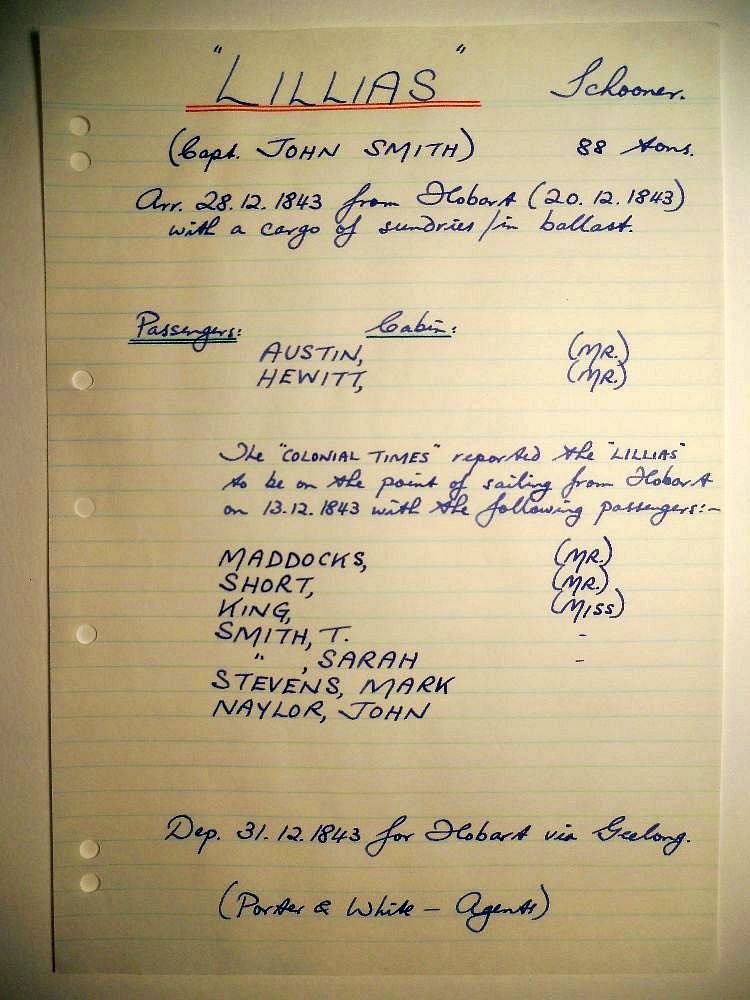 "LILLIAS" Schooner.
(Capt. JOHN SMITH) 88 tons.
Arr. 28.12.1843 from Hobart (20.12.1843)
with a cargo of sundries/in ballast.
Passengers: Cabin:
AUSTIN, (MR.)
HEWITT, (MR.)
The "COLONIAL TIMES" reported the "LILLIAS"
to be on the point of sailing from Hobart
on 13.12.1843 with the following passengers:-
MADDOCKS, (MR.)
SHORT, (MR.)
KING, (MISS)
SMITH, T. -
" , SARAH -
STEVENS, MARK
NAYLOR, JOHN
Dep. 31.12.1843 for Hobart via Geelong.
(Porter & White - Agents)